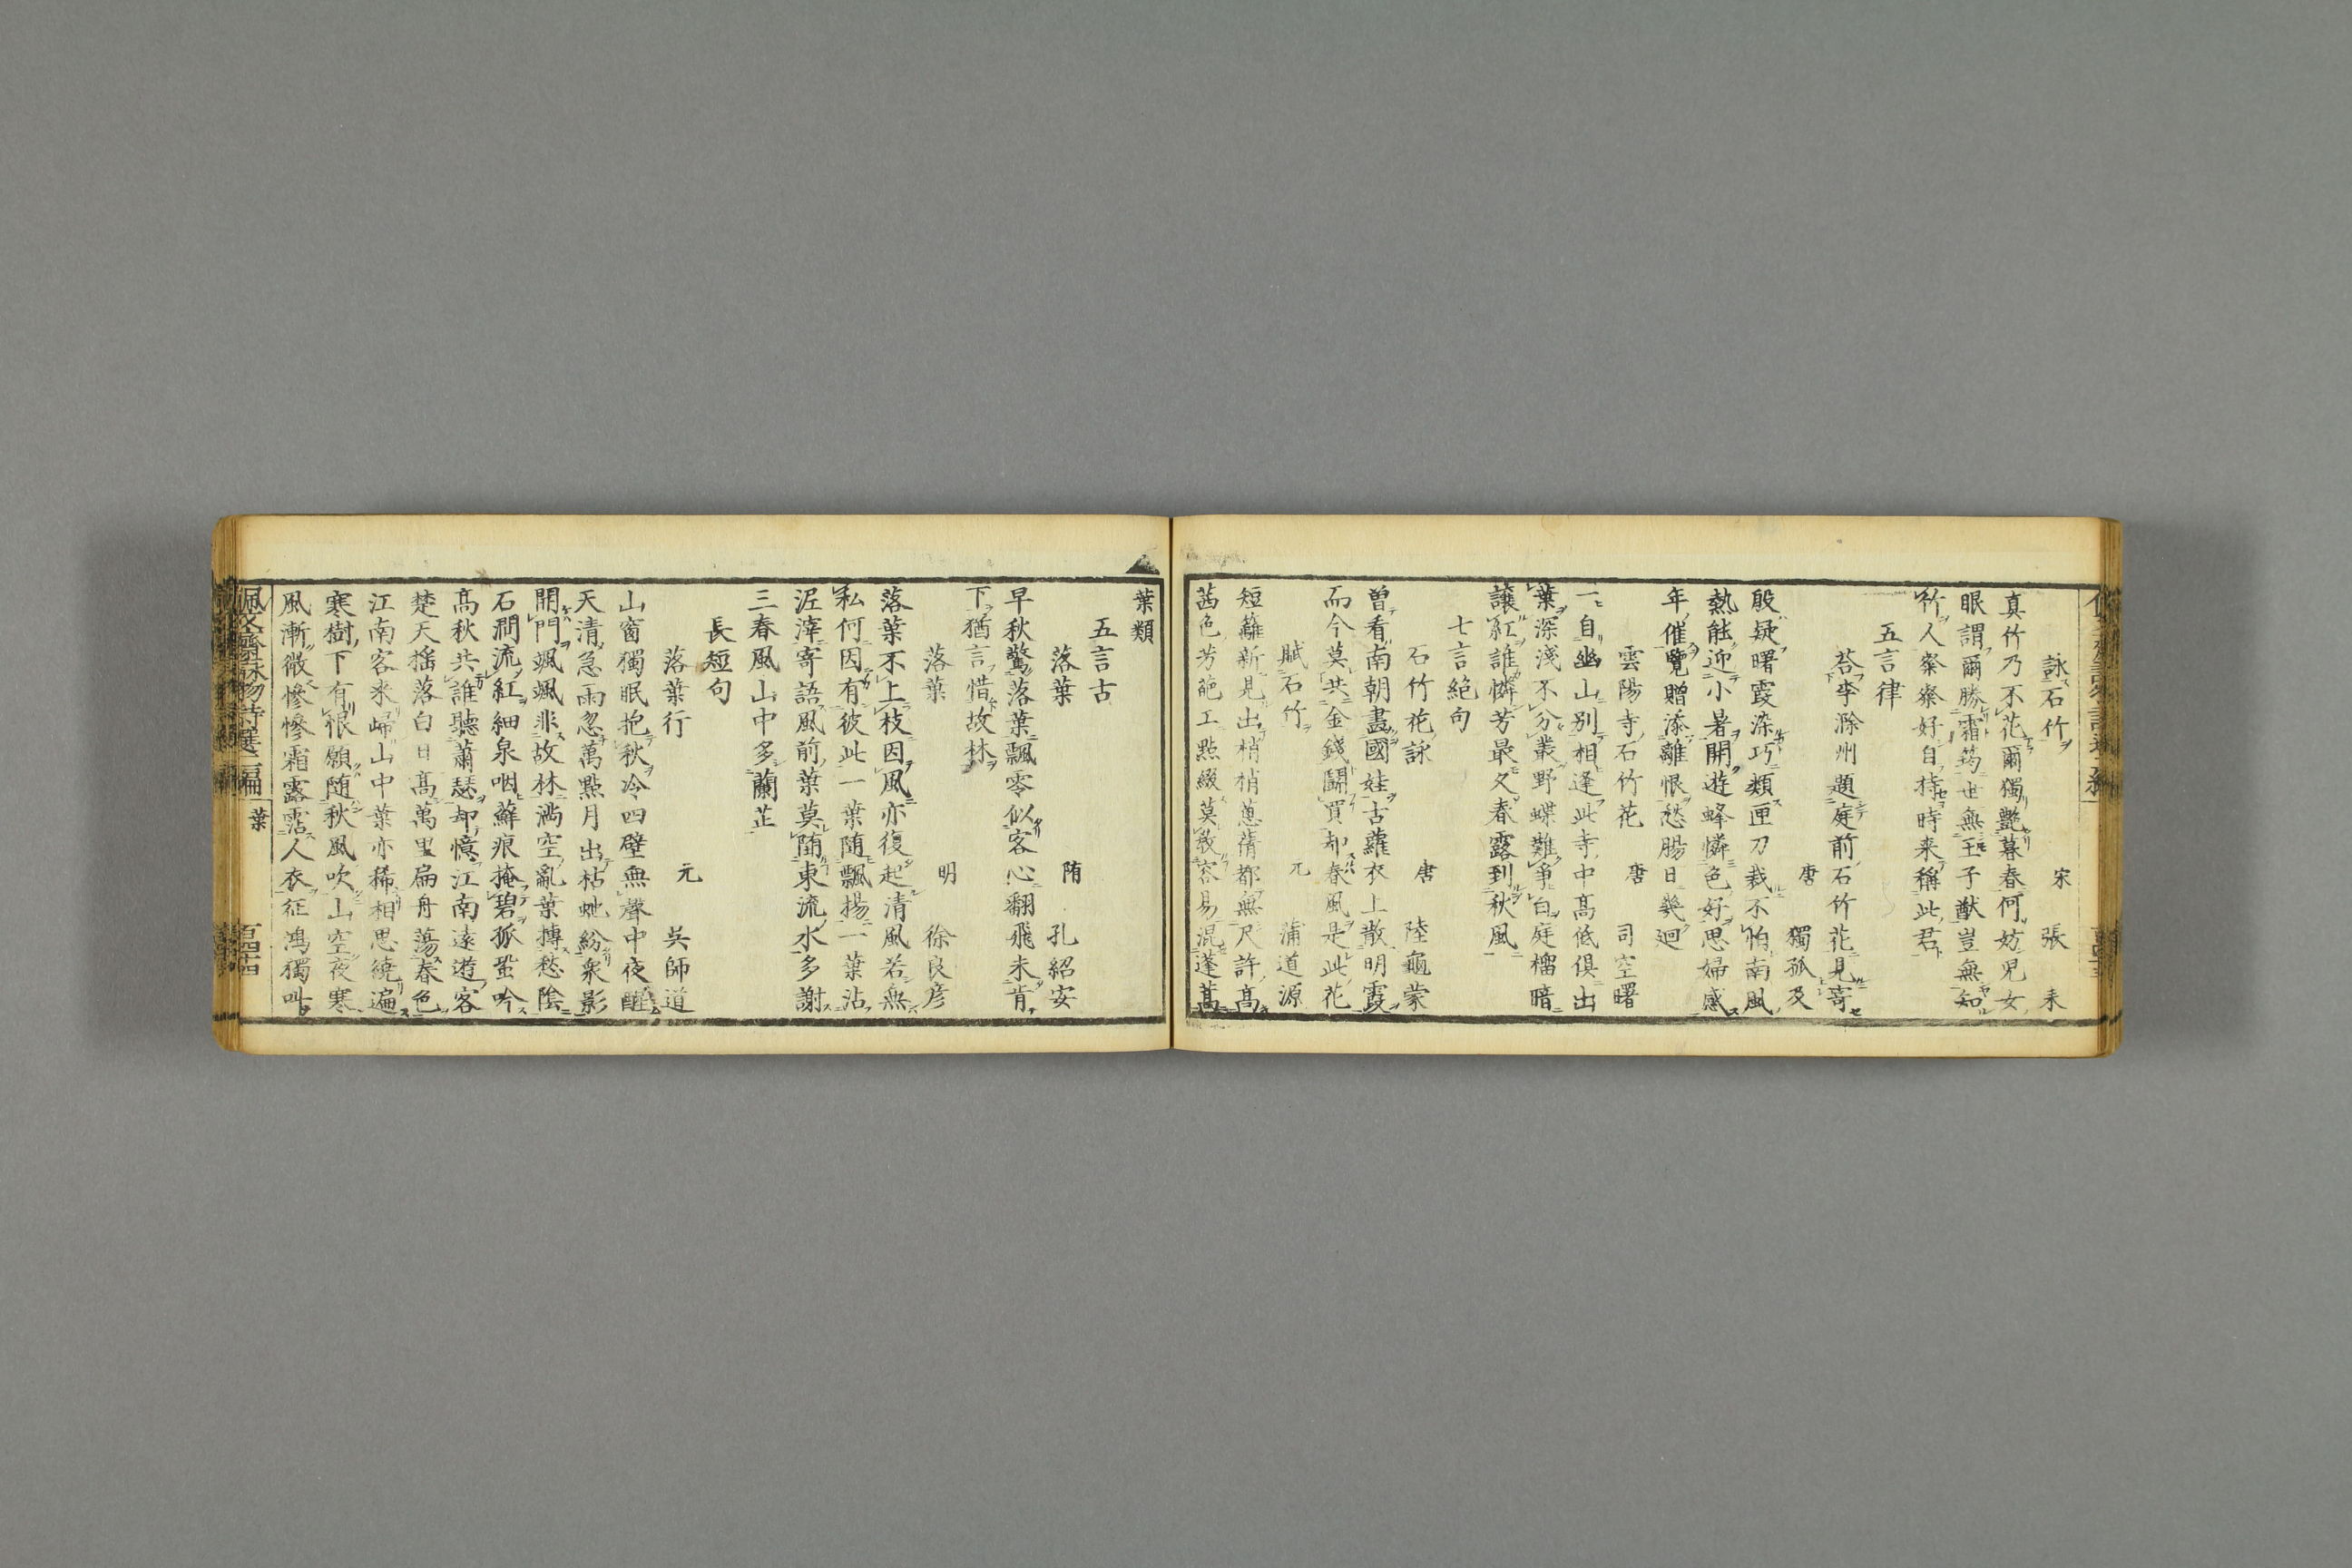 詠石竹 宋 張耒
真竹乃不花爾獨艶暮春何妨児女
眼謂爾勝霜筠世無王子猷豈無知
竹人粲粲好自持時来稱此君
五言律
荅李滁州題庭前石竹花見寄
唐 獨孤及
殷疑曙霞染巧類匣刀裁不怕南風
熱能迎小暑開遊蜂憐色好思婦感
年催覽贈添離恨愁腸日幾迴
雲陽寺石竹花 唐 司空曙
一自幽山别相逢此寺中髙低俱出
葉深淺不分叢野蝶難爭白庭榴暗
讓紅誰憐芳最久春露到秋風
七言絶句
石竹花詠 唐 陸龜蒙
曽看南朝畫國娃古蘿衣上散明霞
而今莫共金錢鬭買却春風是此花
賦石竹 元 蒲道源
短籬新見出梢梢蔥蒨都無尺許髙
茜色芳葩工點綴莫教容易混蓬蒿
葉類
五言古
落葉 隋 孔紹安
早秋驚落葉飄零似客心翻飛未肯
下猶言惜故林
落葉 明 徐良彦
落葉不上枝因風亦復起清風若無
私何因有彼此一葉随飄揚一葉沾
泥滓寄語風前葉莫随東流水多謝
三春風山中多蘭芷
長短句
落葉行 元 吳師道
山窗獨眠抱秋冷四壁無聲中夜醒
天清急雨忽萬點月出枯虵紛衆影
開門颯颯非故林満空亂葉摶愁陰
石澗流紅細泉咽蘚痕掩碧孤蛩吟
髙秋共誰聽蕭瑟却憶江南遠遊客
楚天揺落白日髙萬里扁舟蕩春色
江南客来歸山中葉亦稀相思繞遍
寒樹下有恨願随秋風吹山空夜寒
風漸微慘慘霜露霑人衣征鴻獨叫
佩文齋詠物詩選二編 葉 百四十四